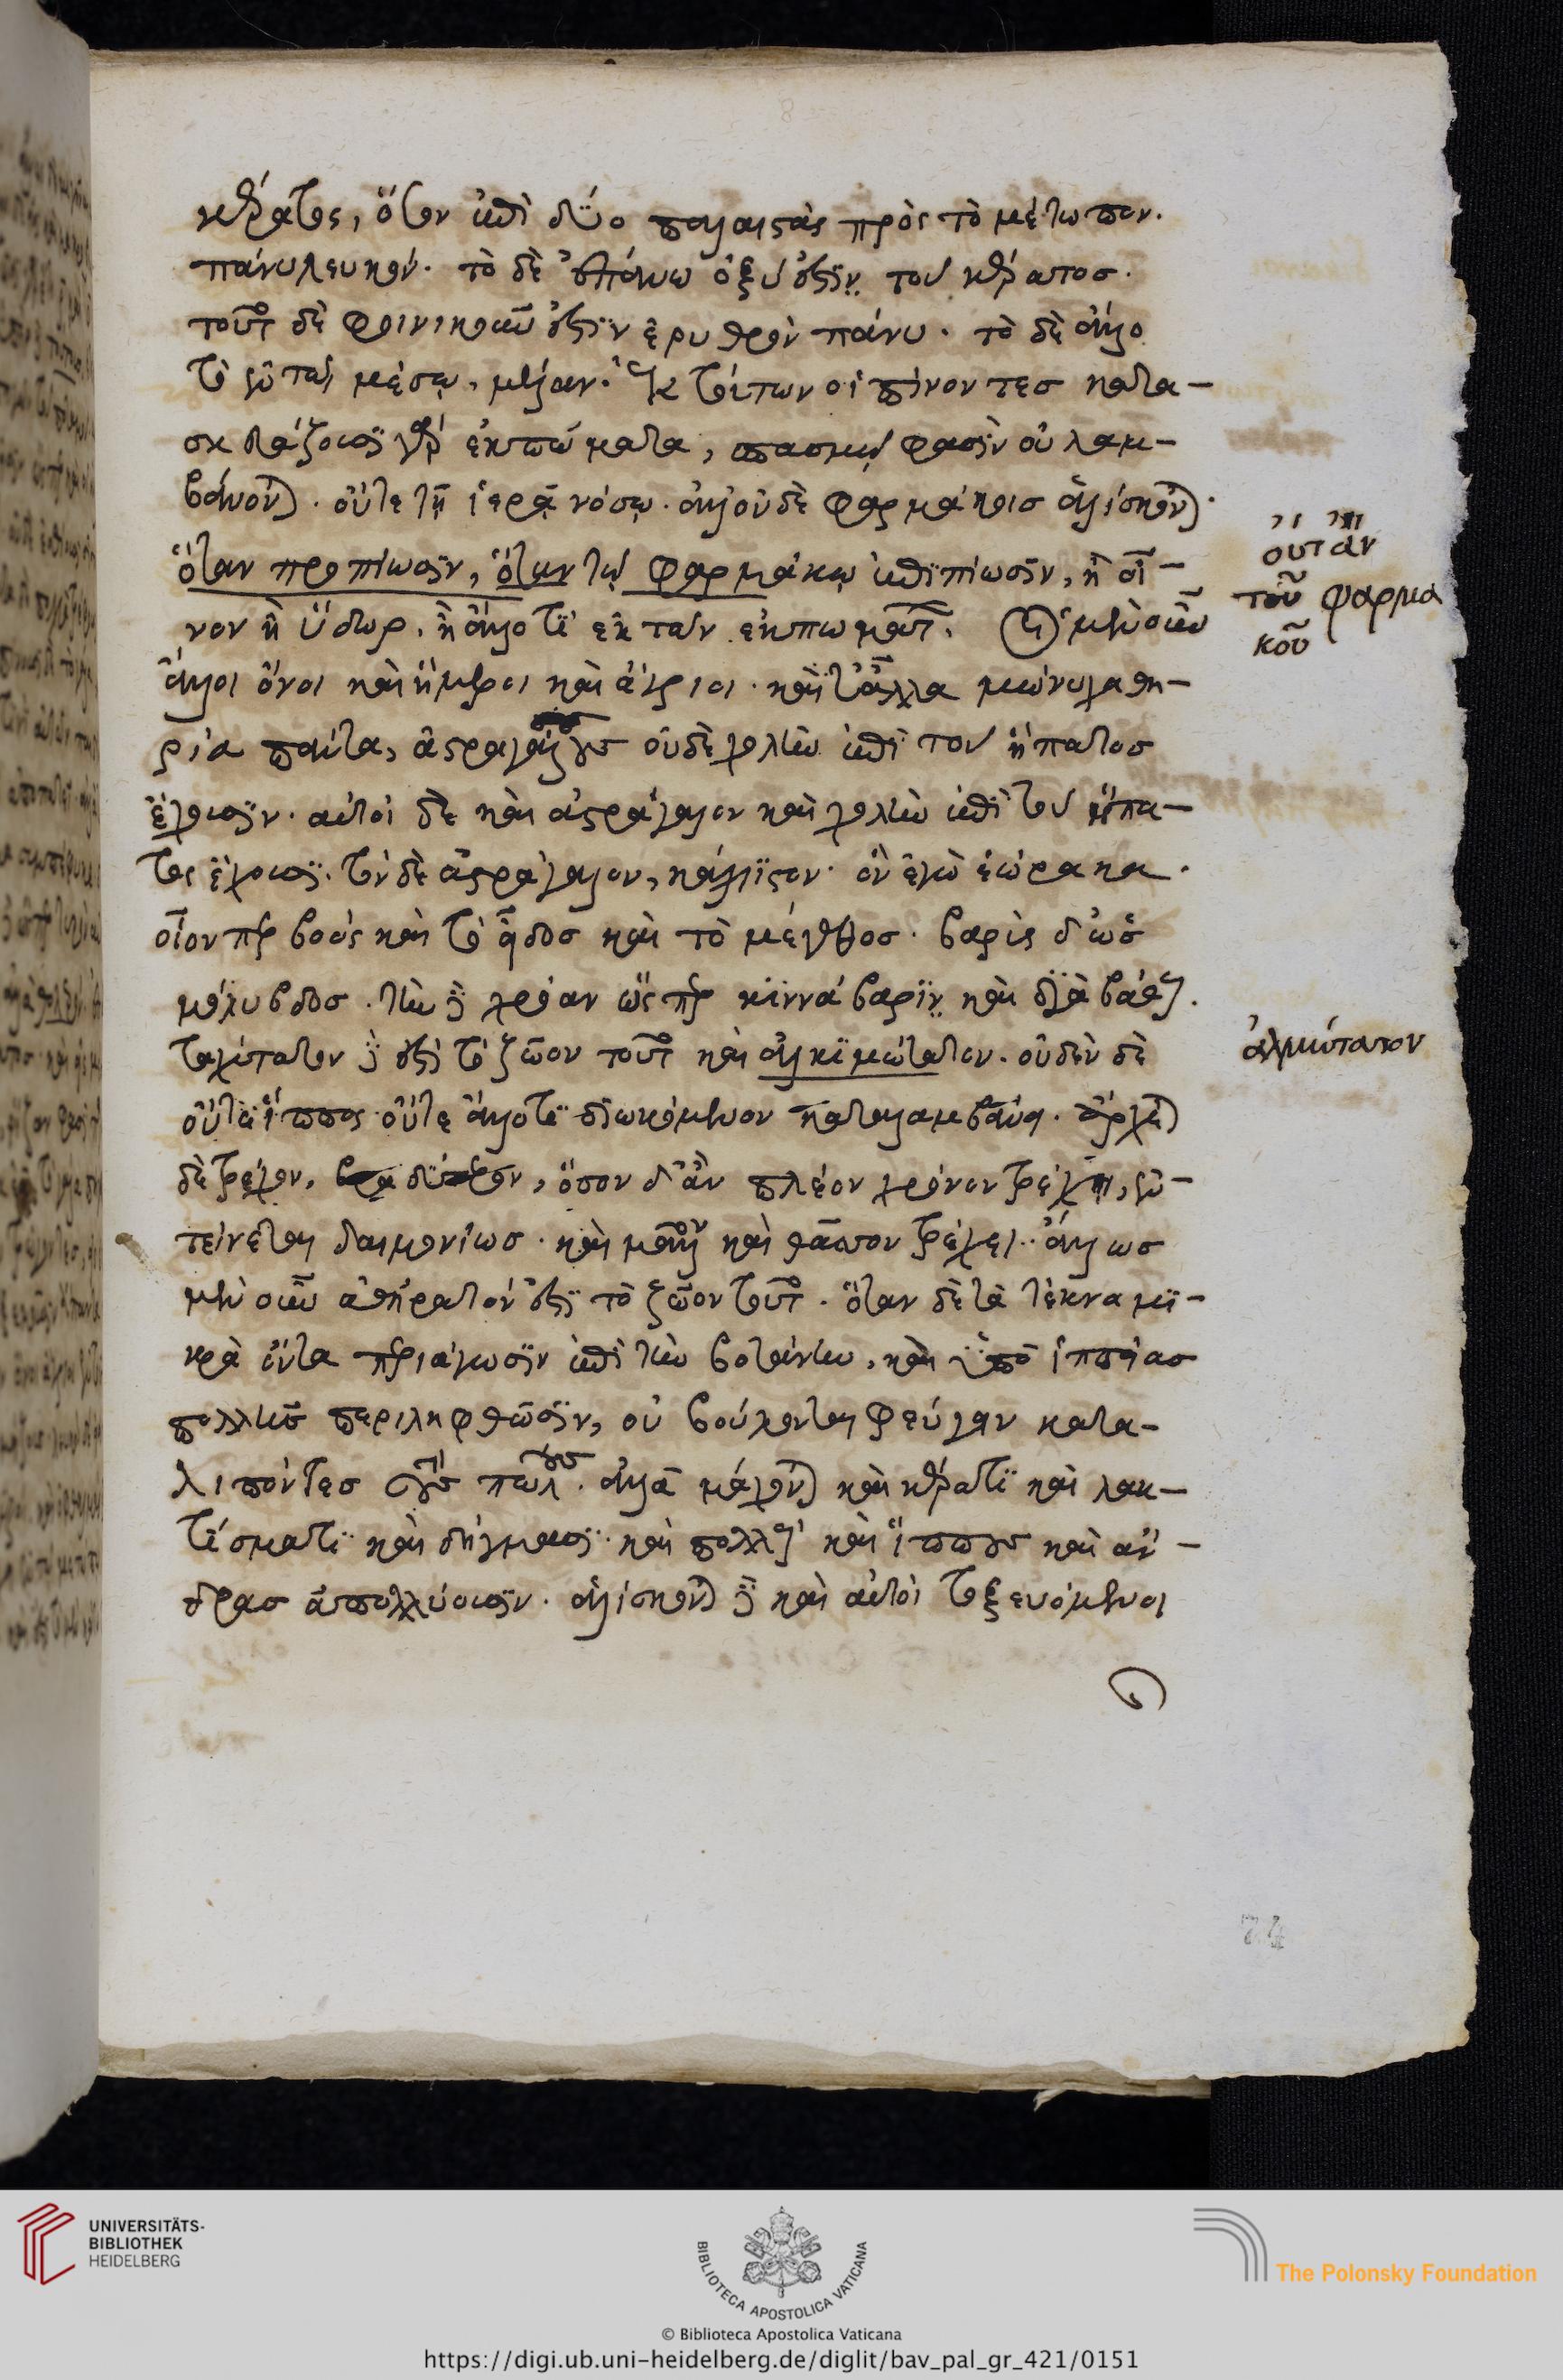 κέρατος, ὅσον ἐπὶ δύο παλαιστὰς πρὸς τὸ μέτωπον.
πάνυ λευκόν. τὸ δὲ ἐπάνω ὀξύ ἐστιν τοῦ κέρατος.
τοῦτο δὲ φοινικοῦν ἐστιν ἐρυθρὸν πάνυ. τὸ δὲ ἄλλο
τὸ ἐν τῷ μέσῳ, μέλαν. ἐκ τούτων οἱ πίνοντες κατα-
σκευάζουσι γὰρ ἐκπώματα, σπασμῷ φασὶν οὐ λαμ-
βάνονται. οὔτε τῇ ἱερᾷ νόσῳ. ἀλλ' οὐδὲ φαρμάκοις ἁλίσκονται.
ὅταν προπίωσιν, ὅταν τῷ φαρμάκῳ ἐπιπίωσιν, ἢ οἶ-
νον ἢ ὕδωρ. ἢ ἄλλο τι ἐκ τῶν ἐκπωμάτων. οἱ μὲν οὖν
ἄλλοι ὄνοι καὶ ἥμεροι καὶ ἄγριοι. καὶ τἆλλα μώνυχα θη-
ρία πάντα, ἀστραγάλους οὐδὲ χολὴν ἐπὶ τοῦ ἥπατος
ἔχουσιν. αὐτοὶ δὲ καὶ ἀστράγαλον καὶ χολὴν ἐπὶ τοῦ ἥπα-
τος ἔχουσι. τὸν δὲ ἀστράγαλον, κάλλιστον. ὃν ἐγὼ ἑώρακα.
οἷον περ βοὸς καὶ τὸ εἶδος καὶ τὸ μέγεθος. βαρὺς δ' ὡς
μόλυβδος. τὴν δὲ χρόαν ὥσπερ κιννάβαριν καὶ διὰ βάθους.
ταχύτατον δέ ἐστι τὸ ζῶον τοῦτο καὶ ἀλκιμώτατον. οὐδὲν δὲ
οὔτε ἵππος οὔτε ἄλλο τι διωκόμενον καταλαμβάνει. ἄρχεται
δὲ τρέχον, βραδύτερον, ὅσον δ' ἂν πλέον χρόνον τρέχῃ, ἐν-
τείνεται δαιμονίως. καὶ μᾶλλον καὶ θᾶσσον τρέχει. ἄλλως
μὲν οὖν ἀθήρατόν ἐστι τὸ ζῶον τοῦτο. ὅταν δὲ τὰ τέκνα μι-
κρὰ ὄντα περιάγωσιν ἐπὶ τὴν βοτάνην, καὶ ὑπὸ ἱππείας
πολλῆς περιληφθῶσιν, οὐ βούλονται φεύγειν κατα-
λιπόντες τοὺς πώλους. ἀλλὰ μάχονται καὶ κέρατι καὶ λακ-
τίσματι καὶ δήγμασι. καὶ πολλοὺς καὶ ἵππους καὶ ἄν-
δρας ἀπολλύουσιν. ἁλίσκονται δὲ καὶ αὐτοὶ τοξευόμενοι
οὔτ' ἂν
τοῦ φαρμα
κοῦ
ἀλκιμώτατον
74
UNIVERSITÄTS-
BIBLIOTHEK
HEIDELBERG
BIBLIOTECA APOSTOLICA VATICANA
The Polonsky Foundation
© Biblioteca Apostolica Vaticana
https://digi.ub.uni-heidelberg.de/diglit/bav_pal_gr_421/0151